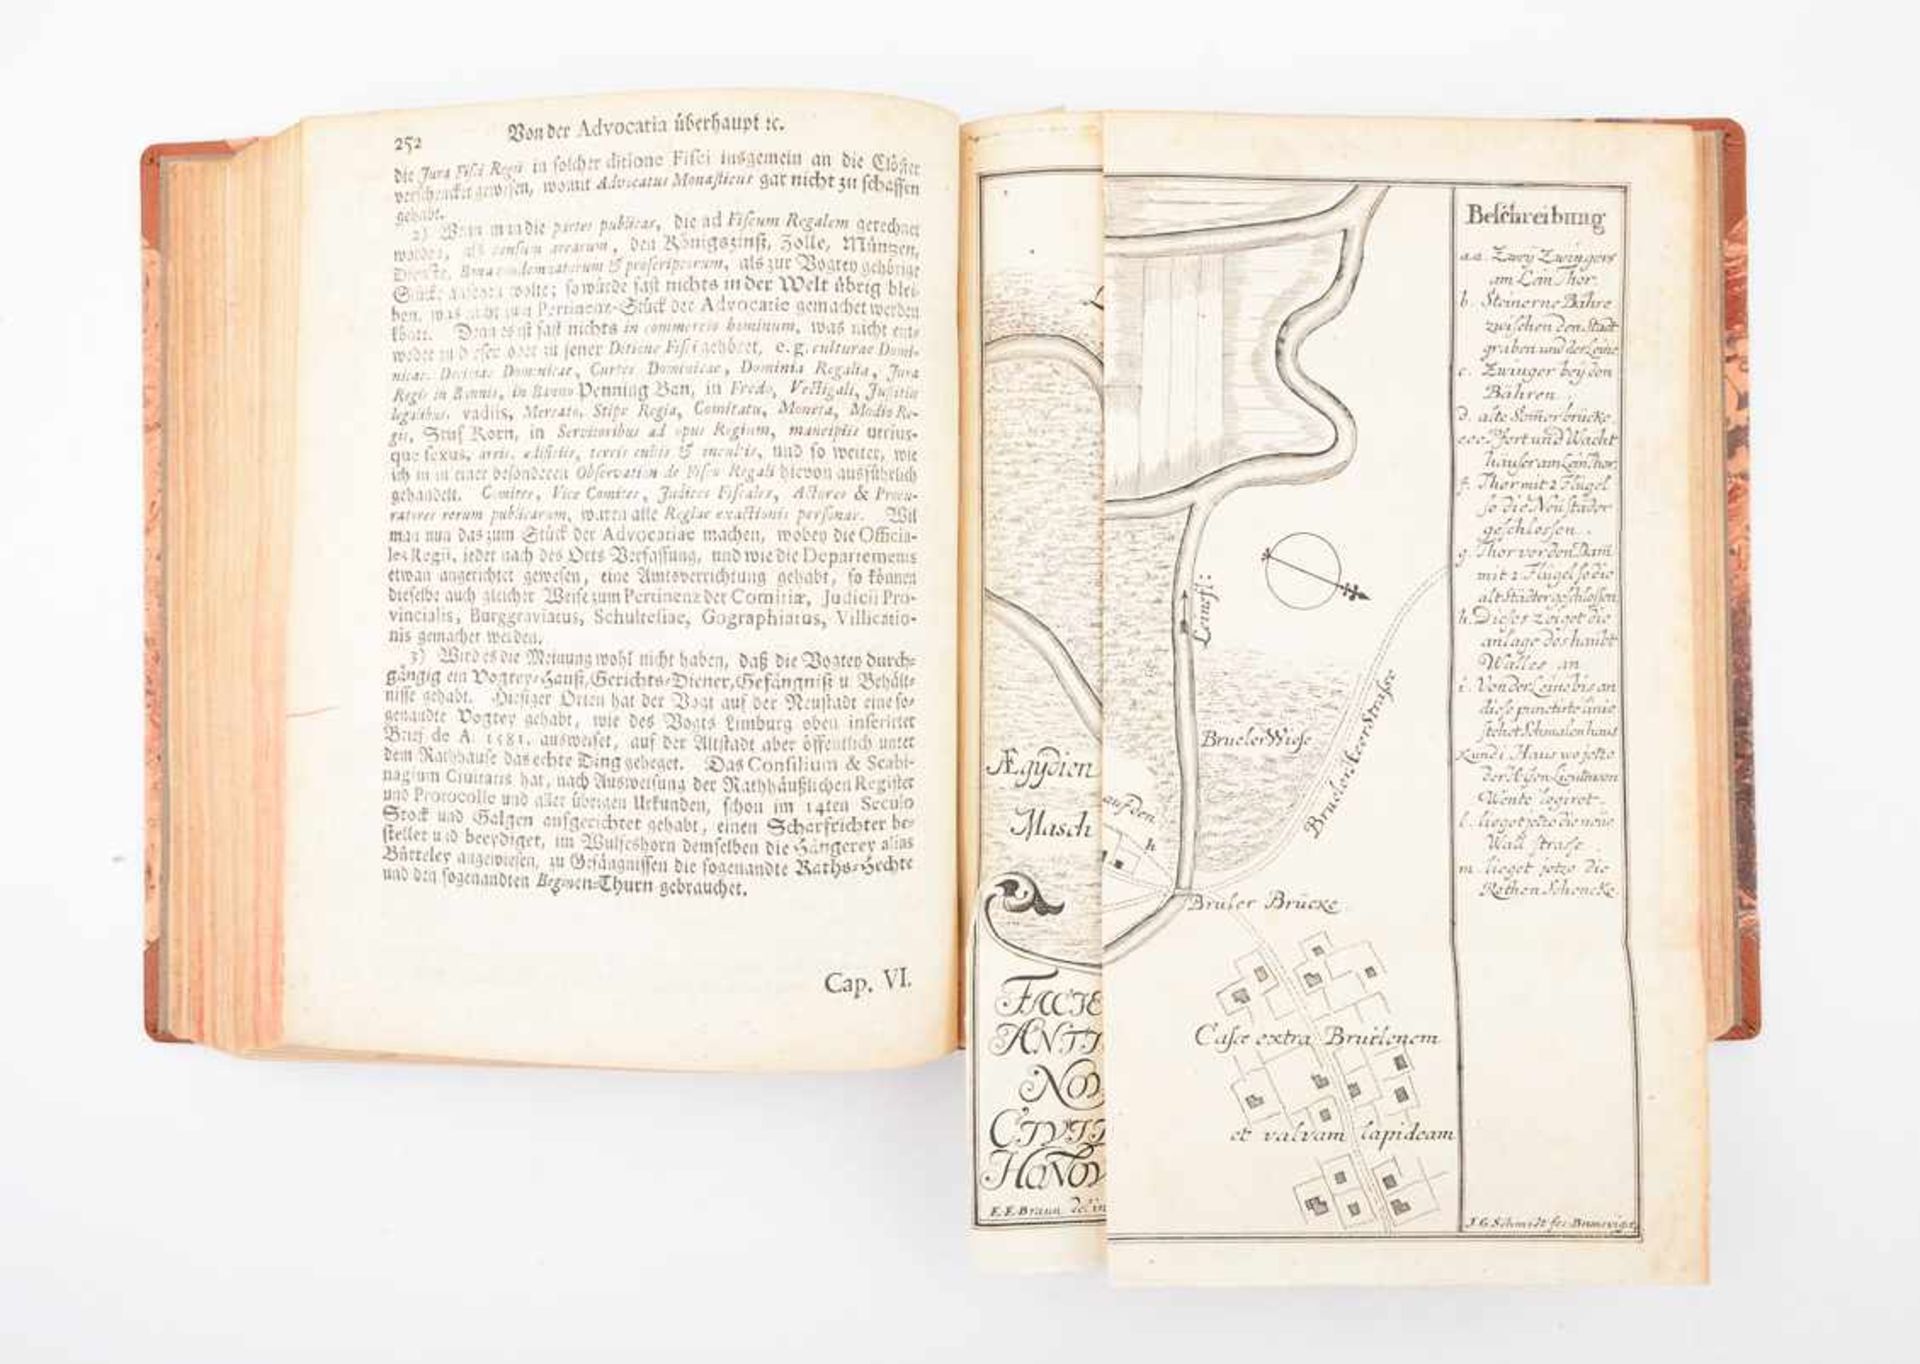 252 Von der Advocatia überhaupt ꝛc.
die Jura Fisci Regii in solcher ditione Fisci insgemein an die Clöster
verschencket gewesen, womit Advocatus Monasticus gar nicht zu schaffen
gehabt.
2) Wann man die partes publicas, die ad Fiscum Regalem gerechnet
worden, als censum arearum, den Königszinß, Zölle, Müntzen,
Dienste, Bona condemnatorum & proscriptorum, als zur Vogtey gehörige
Stücke ansehen wolte; so würde fast nichts in der Welt übrig blei-
ben, was nicht zum Pertinenz-Stück der Advocatie gemachet werden
könte. Denn es ist fast nichts in commercio hominum, was nicht ent-
weder zu dieser oder zu jener Ditione Fisci gehöret, e. g. culturae Domi-
nicae, Decimae Dominicae, Curtes Dominicae, Dominia Regalia, Jura
Regis in Bannis, in Banno Penning Ban, in Fredo, Vectigali, Justitia
legalibus, vadiis, Mercato, Stipe Regia, Comitatu, Moneta, Modio Re-
gii, Stuf Korn, in Servitoribus ad opus Regium, mancipiis utrius-
que sexus, areis, aedificiis, terris cultis & incultis, und so weiter, wie
ich in einer besonderen Observation de Fisco Regali hievon ausführlich
gehandelt. Comites, Vice Comites, Judices Fiscales, Actores & Procu-
ratores rerum publicarum, waren alle Regiae exactionis personae. Wil
man nun das zum Stück der Advocatiae machen, wobey die Officia-
les Regii, ieder nach des Orts Verfassung, und wie die Departements
etwan angerichtet gewesen, eine Amtsverrichtung gehabt, so können
dieselbe auch gleicher Weise zum Pertinenz der Comitiæ, Judicii Pro-
vincialis, Burggraviatus, Schultesiae, Gographiatus, Villicatio-
nis gemachet werden.
3) Wird es die Meinung wohl nicht haben, daß die Vogtey durch-
gängig ein Vogtey-Hauß, Gerichts-Diener, Gefängniß u Behält-
nisse gehabt. Hiesiger Orten hat der Vogt auf der Neustadt eine so-
genandte Vogtey gehabt, wie des Vogts Limburg oben inserirter
Brief de A. 1581. ausweiset, auf der Altstadt aber öffentlich unter
dem Rathhause das echte Ding geheget. Das Consilium & Scabi-
nagium Civitatis hat, nach Ausweisung der Rathhäußlichen Register
und Protocolle und aller übrigen Urkunden, schon im 14ten Seculo
Stock und Galgen aufgerichtet gehabt, einen Scharfrichter be-
stellet und beeydiget, im Wulfeshorn demselben die Hängerey alias
Bütteley angewiesen, zu Gefängnissen die sogenandte Raths-Hechte
und den sogenandten Beginen-Thurn gebrauchet.
Cap. VI.
L
Leinefl:
Brueler Wiese
Brueler Heer Strasse
Ægÿdien
Masch
auf den
h
Brüler Brücke
FACIE
ANTI
NOV
CIVIT
HONOV
E. E. Braun delin
Casæ extra Bruelenem
et valvam lapideam
Beschreibung
a.a. Zweÿ Zwingers
am Lein Thor.
b. Steinerne Bähre
zwischen den Stadt
graben und der Leine
c. Zwinger beÿ den
Bähren
d. alte Sommerbrücke
e.e.e. Pfort und Wacht
häuser am Lein Thor.
f. Thor mit 2 Flügel
so die Neustäder
geschlossen.
g. Thor vor den Dam
mit 2 Flügel so die
altstädter geschlossen
h. Dieses zeiget die
anlage des haubt
Walles an
i. Von der Leine bis an
diese punctirte linie
stehet Schmalenhaus
K und i. Haus wo jetzo
der Hr.
Wente logiret.
l. lieget jetzo die neüe
Wall strasse
m. lieget jetzo die
Rothen Schencke.
J. G. Schmidt fec. Brunsvigæ